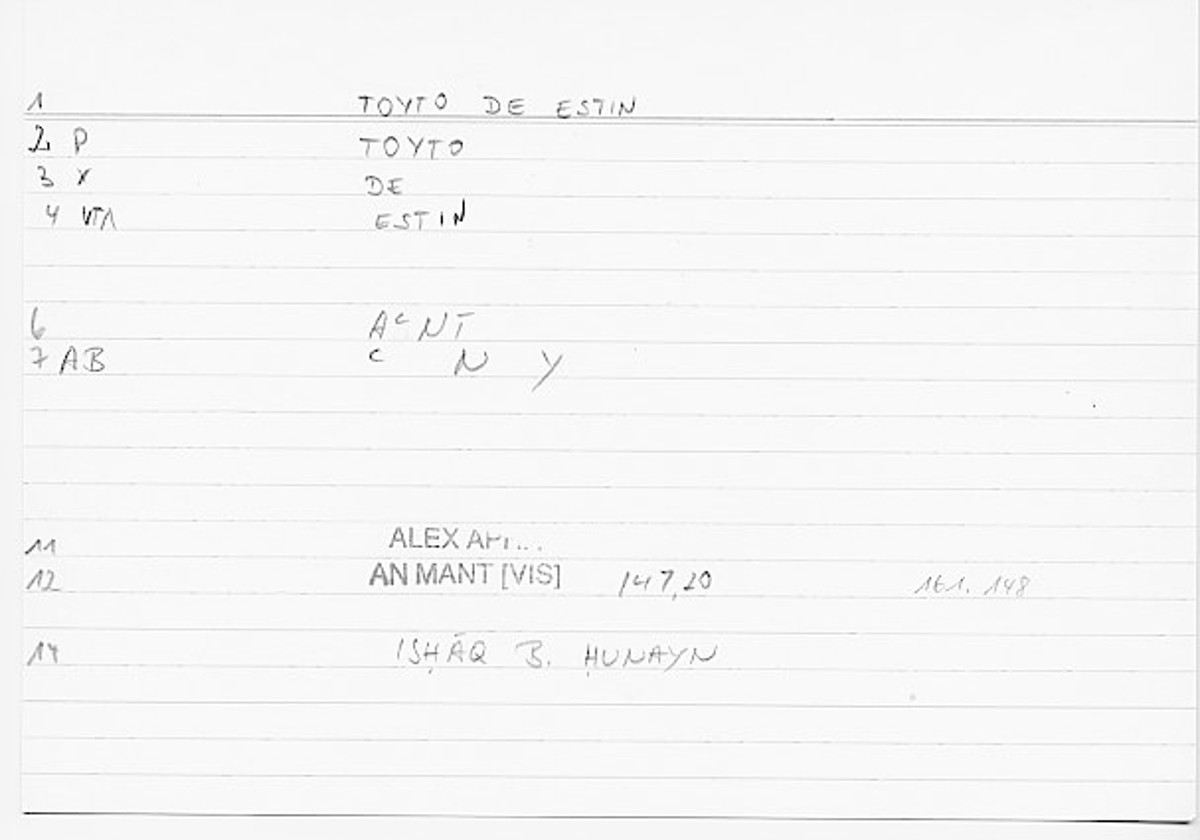 1 TOYTO DE ESTIN
2 P TOYTO
3 X DE
4 VTA ESTIN
6 AᶜNT
7 AB ᶜ N Y
11 ALEX
12 AN MANT [VIS] 147,20 161. 148
14 ISḤĀQ B. ḤUNAYN